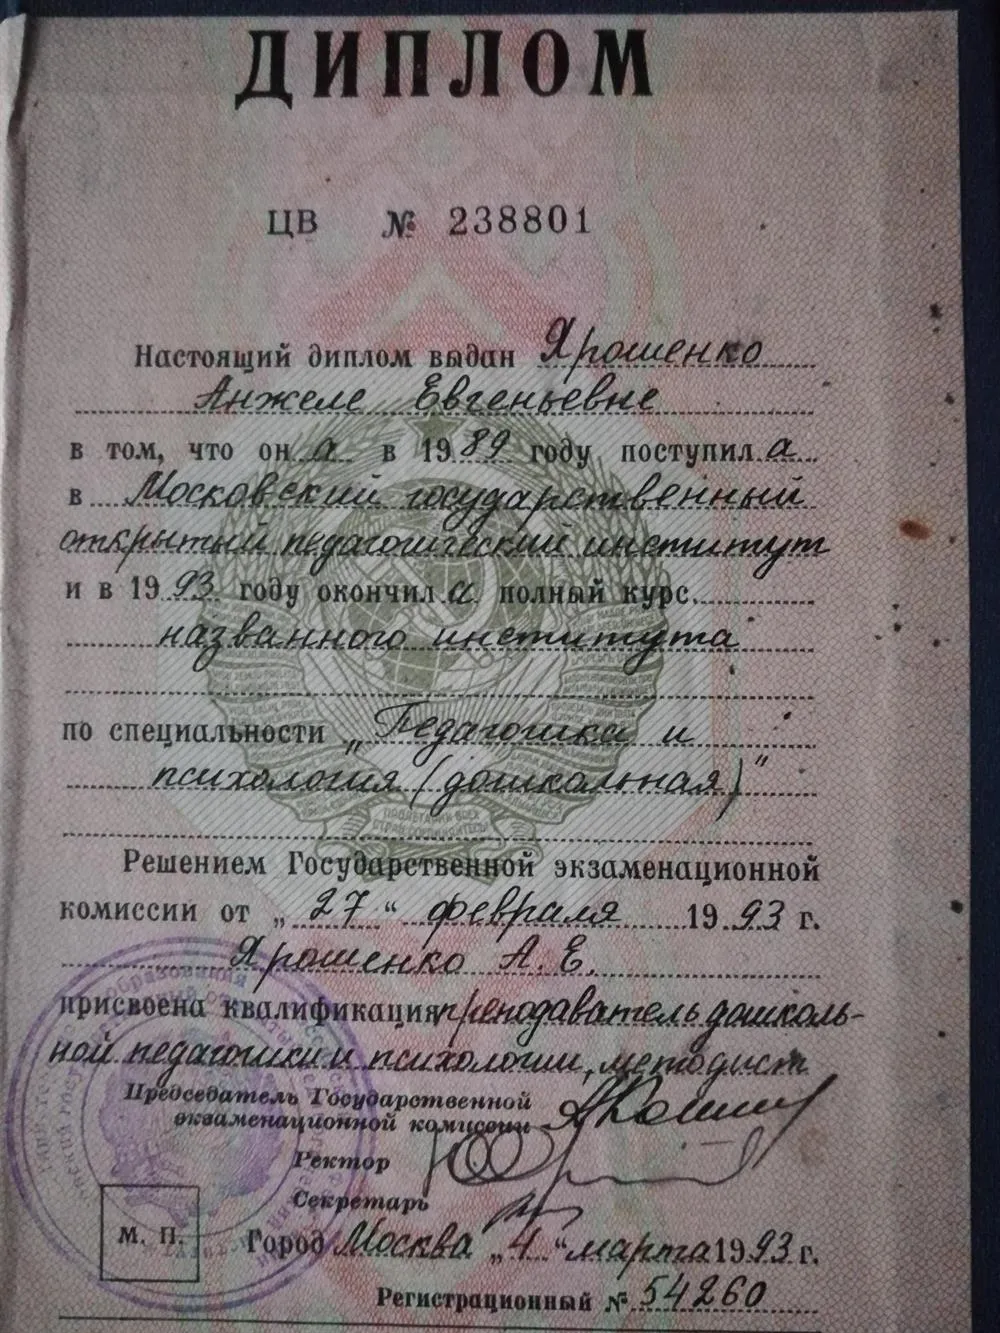 ДИПЛОМ
ЦВ № 238801
Настоящий диплом выдан Ярошенко
Анжеле Евгеньевне
в том, что он а в 1989 году поступил а
в Московский государственный
открытый педагогический институт
и в 1993 году окончил а полный курс
названного института
по специальности „Педагогика и
психология (дошкольная)"
Решением Государственной экзаменационной
комиссии от „27“ февраля 1993 г.
Ярошенко А. Е.
присвоена квалификация преподаватель дошколь-
ной педагогики и психологии, методист
Председатель Государственной
экзаменационной комиссии
Ректор
Секретарь
М. П.
Город Москва „4“ марта 1993 г.
Регистрационный № 54260